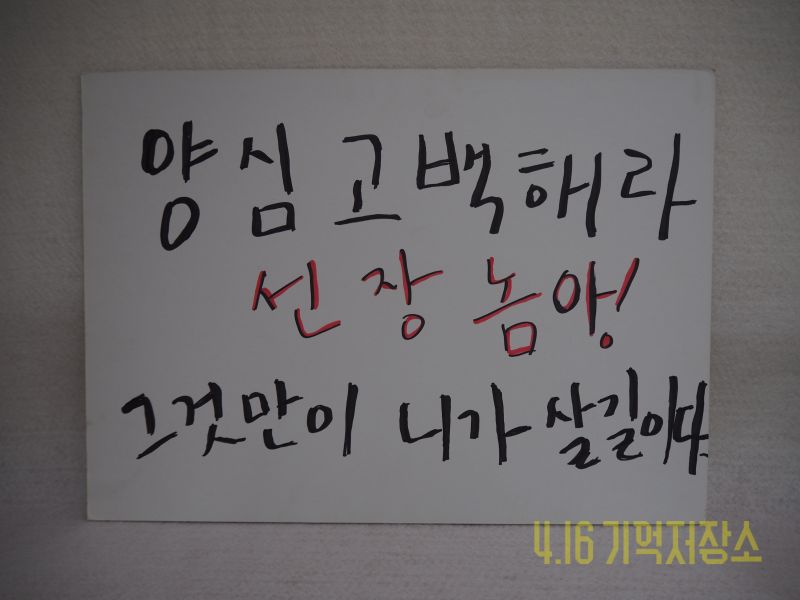 양심 고백해라
선장 놈아!
그것만이 니가 살길이다.
4.16 기억저장소